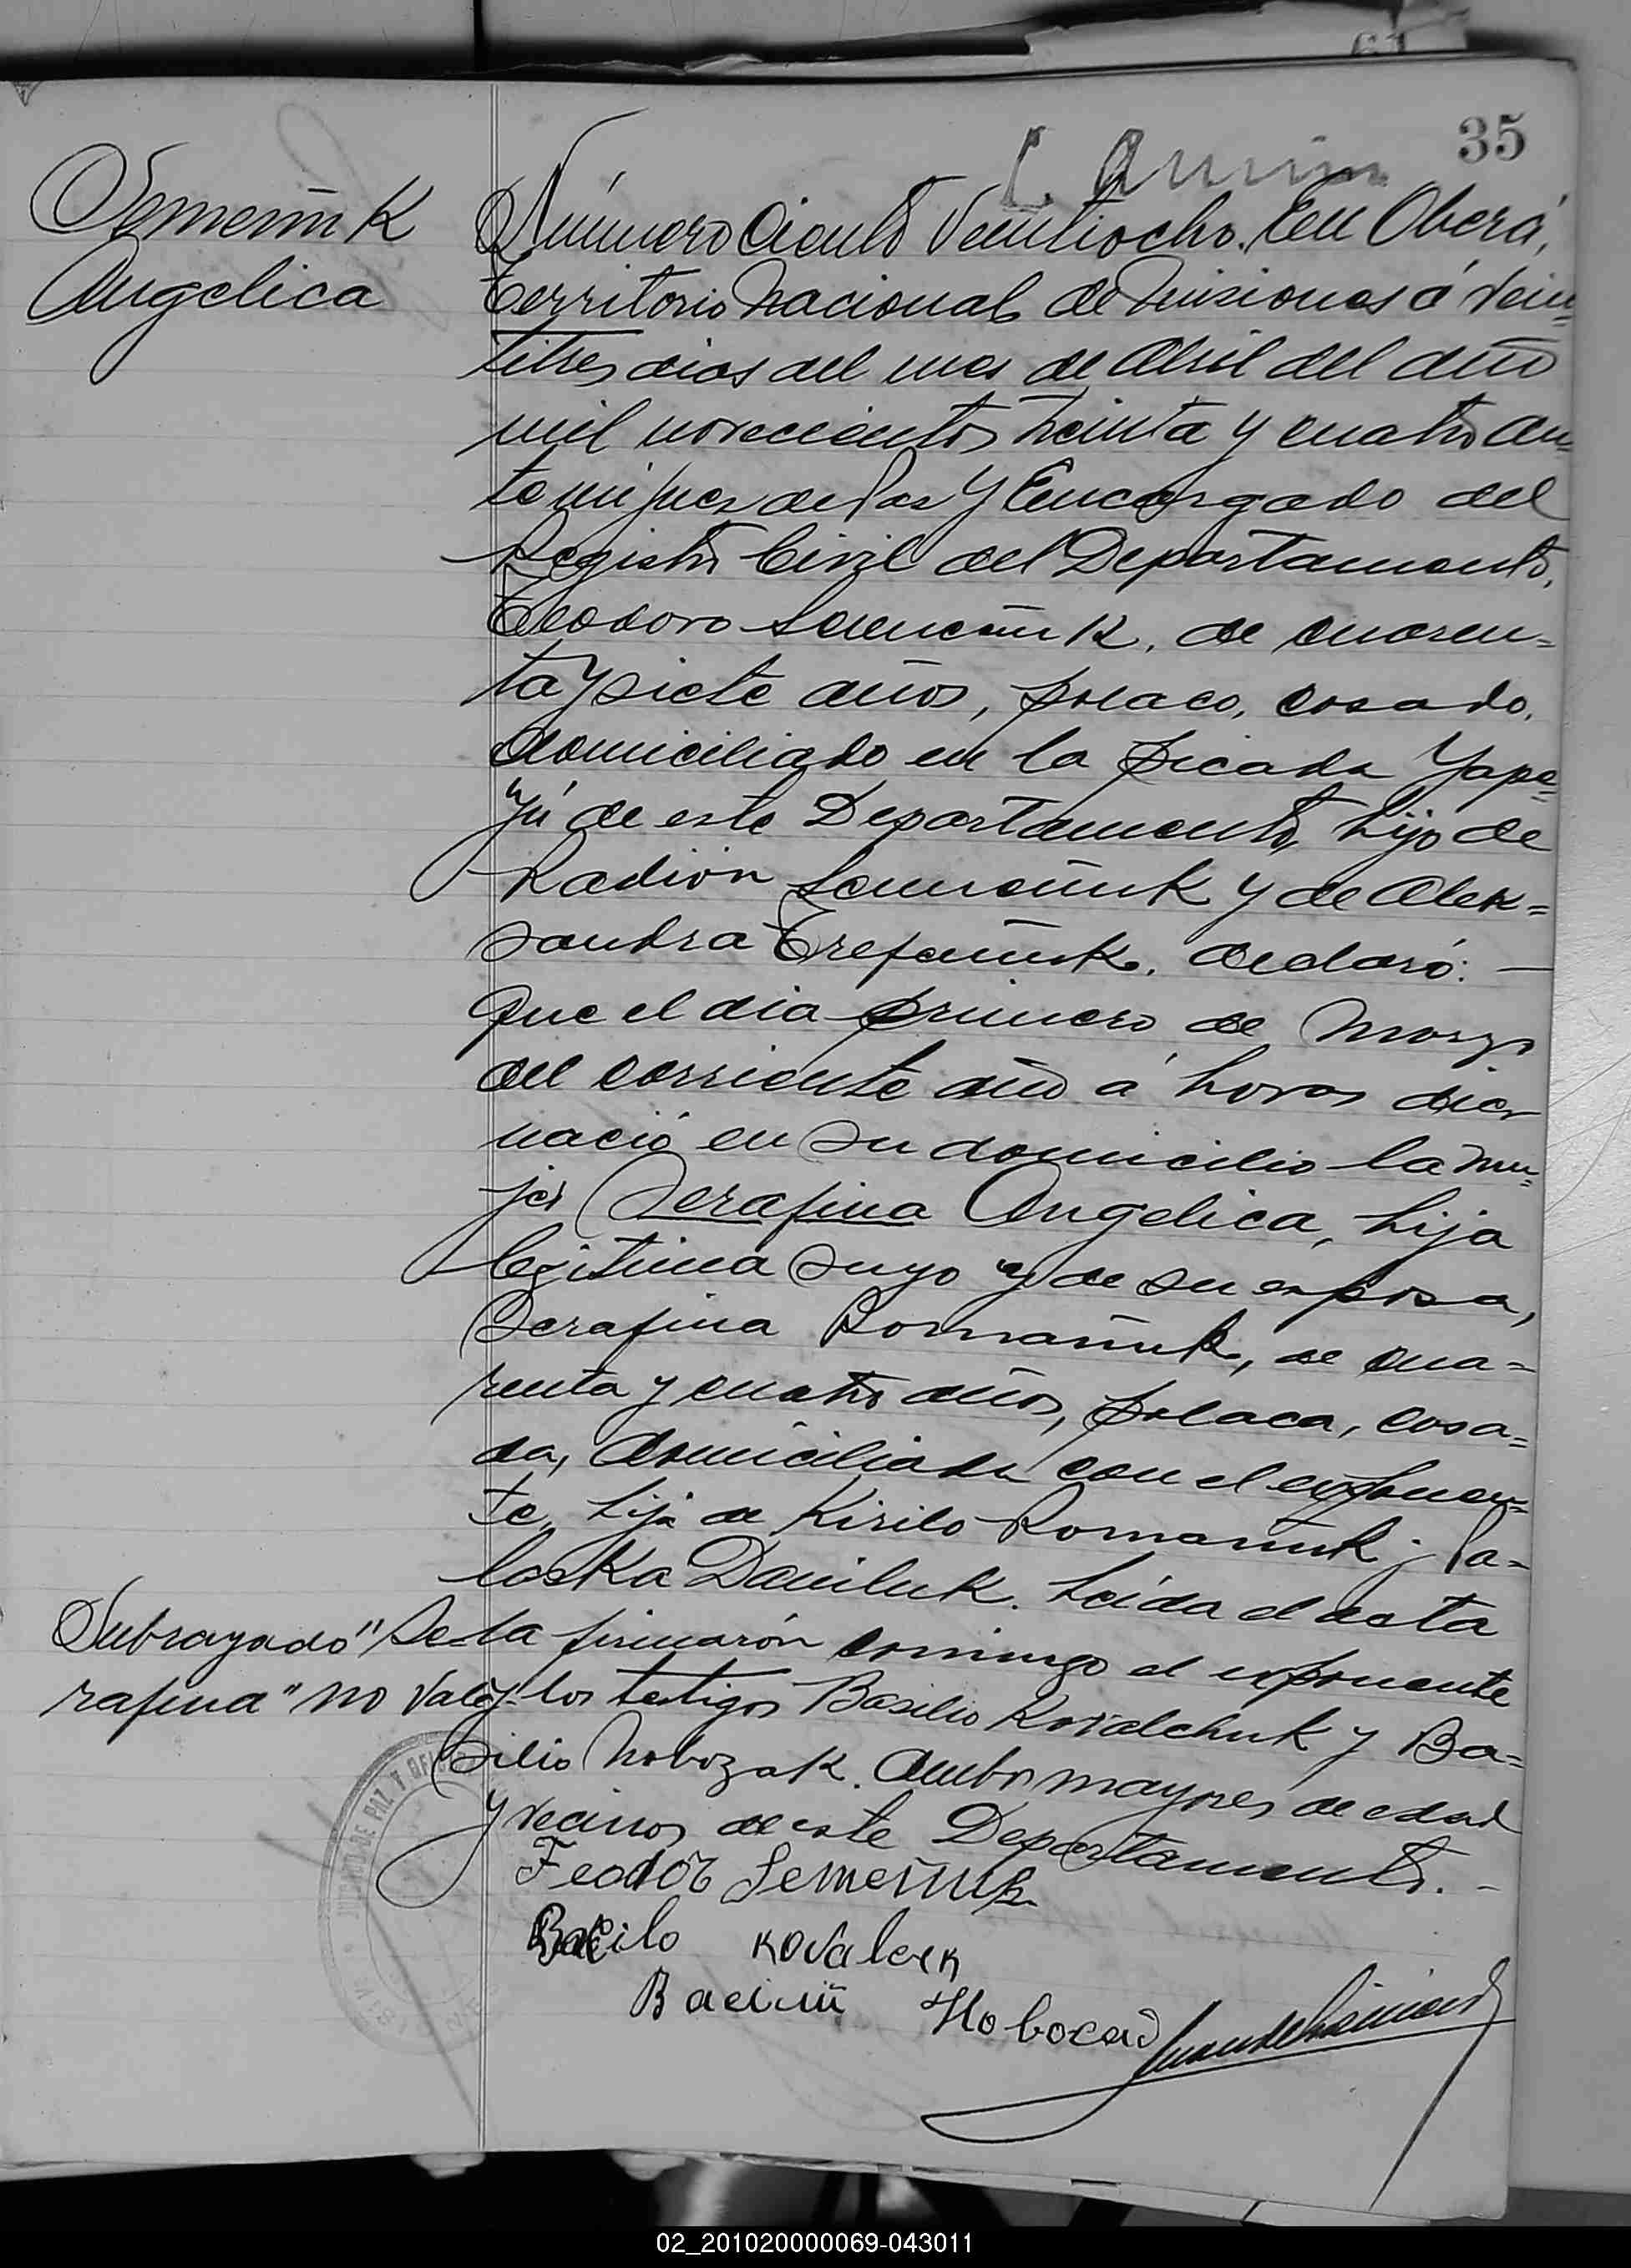 35
Semeñuk
Angelica
Número Ciento Veintiocho. En Oberá,
Territorio Nacional de Misiones á vein=
titres dias del mes de Abril del año
mil novecientos treinta y cuatro an=
te mi Juez de Paz y Encargado del
Registro Civil del Departamento,
Teodoro Semeñuk, de cuaren=
ta y siete años, polaco, casado,
domiciliado en la picada Yape=
yú de este Departamento, hijo de
Radión Semeñuk y de Alek=
sandra Trefañuk, declaró: —
Que el dia primero de Marzo
del corriente año á horas diez
nació en su domicilio la mu=
jer Serafina Angelica, hija
legitima suya y de su esposa,
Serafina Romañuk, de cua=
renta y cuatro años, polaca, casa=
da, domiciliada con el exponen=
te, hija de Kirilo Romañuk y Pa=
laska Daniluk. Leida el acta
la firmarón conmigo el exponente
y los testigos Basilio Kovalchuk y Ba=
silio Nobozak. Ambos mayores de edad
y vecinos de este Departamento. —
Subrayado "Se
rafina" no vale
Feodor Semeñuk
Bacilo
Kovalcuk
JUZGADO DE PAZ Y
02_201020000069-043011